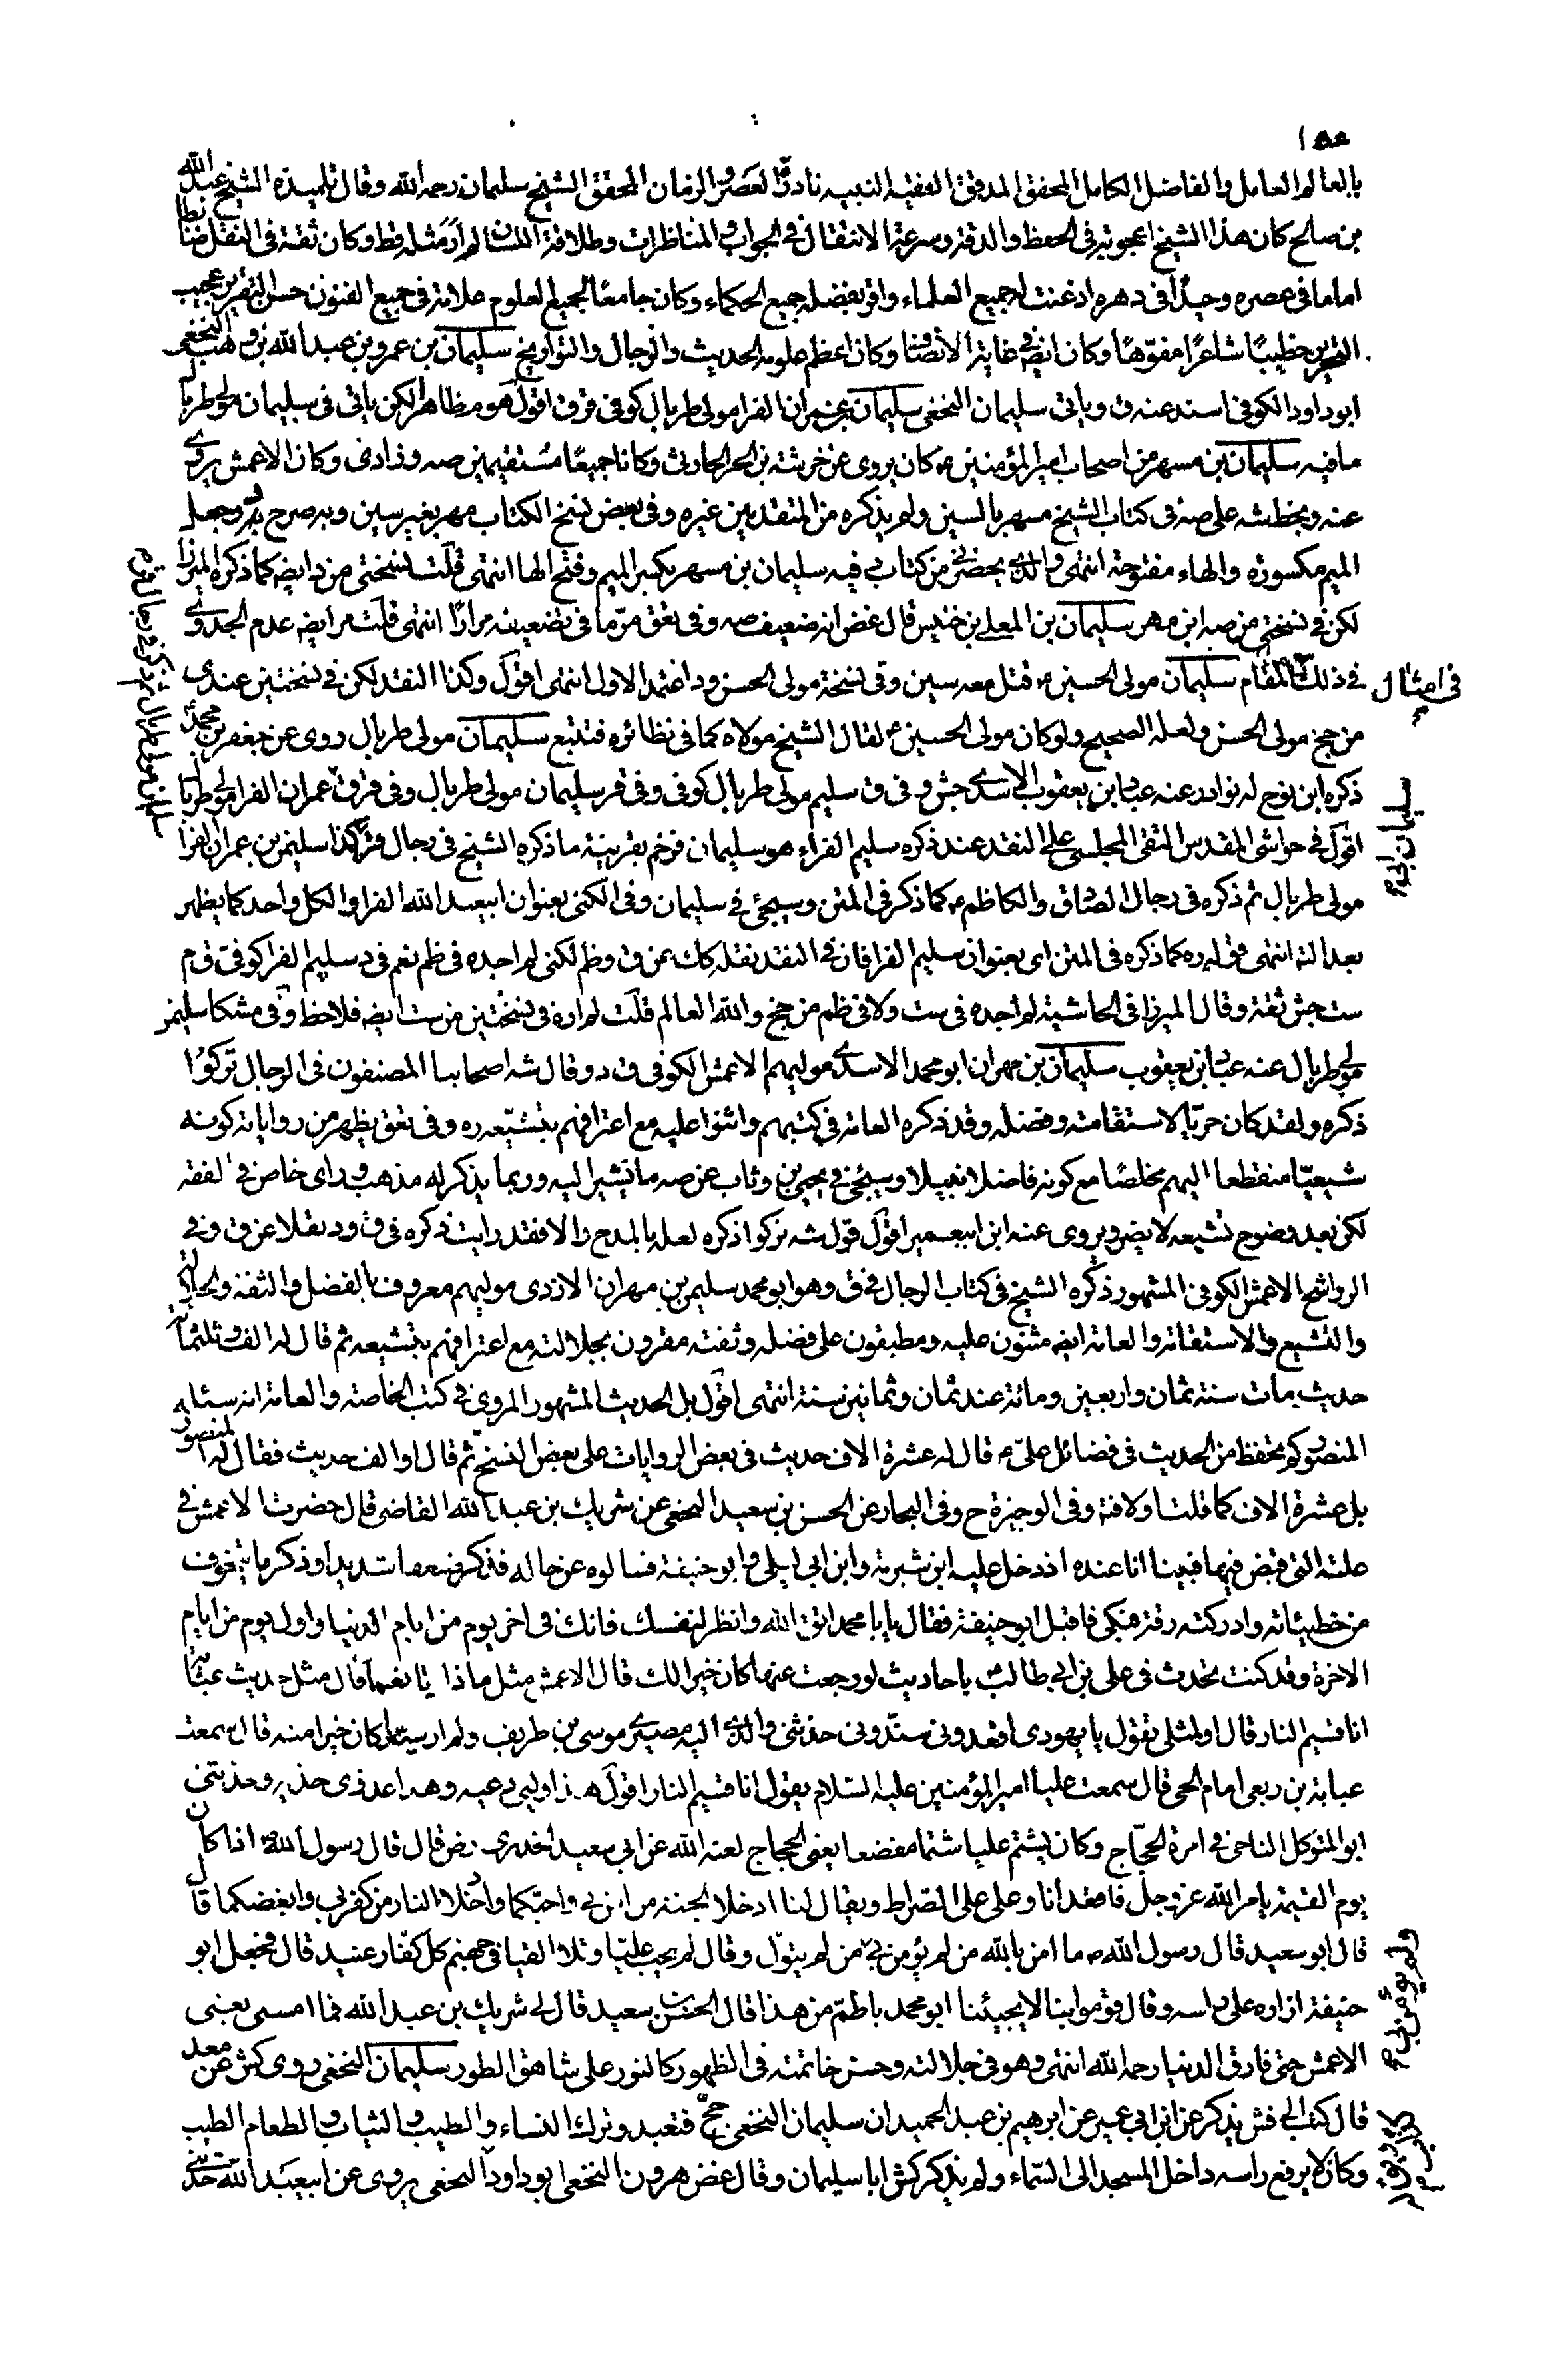 ١٥٥
بالعالم العامل والفاضل الكامل المحقق المدقق الفقيه النبيه نادرة العصر والزمان المحقق الشيخ سليمان رحمه الله وقال تلميذه الشيخ عبد الله
بن صالح كان هذا الشيخ اعجوبة في الحفظ والدقة وسرعة الانتقال في الجواب والمناظرات وطلاقة اللسان لم ار مثله قط وكان ثقة في النقل ضابطا
اماما في عصره وحيدًا في دهره اذعنت له جميع العلماء واقر بفضله جميع الحكماء وكان جامعًا لجميع العلوم علامة في جميع الفنون حسن التقرير عجيب
التحرير خطيبًا شاعرًا مفوّهًا وكان ايضه في غاية الانصاف وكان اعظم علومه الحديث والرجال والتواريخ سليمان بن عمرو بن عبد الله بن وهب النخعي
ابو داود الكوفي اسند عنه ق وياتي سليمان النخعي سليمان بن عمران الفرا مولى طربال كوفي ق ر ق اقول هو مظاهر لكن ياتي في سليمان مولى طربال
ما فيه سليمان بن مسهر من اصحاب امير المؤمنين ع كان يروى عن خرشة بن الحر الحارثي وكانا جميعًا مستقيمين صه وزاد ى وكان الاعمش يروي
عنه وبخط شه على صه في كتاب الشيخ مسهر بالسين ولم يذكره من المتقدمين غيره وفي بعض نسخ الكتاب مهر بغير سين وبه صرح د وجعل
الميم مكسورة والهاء مفتوحة انتهى والذي يحضرني من كتاب ى فيه سليمان بن مسهر بكسر الميم وفتح الها انتهى قلت نسختي من د ايضه كما ذكره الميرزا
لكن في نسختي من صه ابن مهر سليمان بن المعلى بن خنيس قال غض انه ضعيف صه وفي تعق مرّ ما في تضعيفه مرارًا انتهى قلت مر ايضه عدم الجدوى
في ذلك المقام سليمان مولى الحسين ع قتل معه سين وفي نسخة مولى الحسن ود اعتمد الاول انتهى اقول وكذا النقد لكن في نسختين عندى
في امثال
من جخ مولى الحسن ولعله الصحيح ولو كان مولى الحسين ع لقال الشيخ مولاه كما في نظائره فتتبع سليمان مولى طربال روى عن جعفر بن محمد
ذكره ابن نوح له نوادر عنه عباد بن يعقوب الاسدي جش و في ق سليم مولى طربال كوفي وفي قر سليمان مولى طربال وفي ق ر ق عمران الفرا مولى طربال
اقول في حواشي المقدس التقي المجلسي على النقد عند ذكره سليم الفراء هو سليمان فرخم بقرينة ما ذكره الشيخ في رجال ق هكذا سليمن بن عمران الفرا
مولى طربال ثم ذكره في رجال الصادق والكاظم ع كما ذكر في المتن وسيجئ في سليمان وفي الكنى بعنوان ابي عبد الله الفرا والكل واحد كما يظهر
بعد التـ انتهى وقوله ره كما ذكره في المتن اى بعنوان سليم الفرا فان في النقد نقله كك عن ق وظم لكني لم اجده في ظم نعم في د سليم الفرا كوفي ق م
ست جش ثقة وقال الميرزا في الحاشية لم اجده في ست ولا في ظم من جخ والله العالم قلت لم اره في نسختين من ست ايضه فلاحظ وفي مشكا سليمن
مولى طربال عنه عباد بن يعقوب سليمان بن مهران ابو محمد الاسدي موليهم الاعمش الكوفي ق د وقال شه اصحابنا المصنفون في الرجال تركوا
ذكره ولقد كان حريّا لاستقامته وفضله وقد ذكره العامة في كتبهم واثنوا عليه مع اعترافهم بتشيّعه ره وفي تعق يظهر من رواياته كونه
شيعيّا منقطعا اليهم مخلصًا مع كونه فاضلا نبيلا وسيجئ في يحيى بن وثاب عن صه ما يشير اليه وربما يذكر له مذهب وراى خاص في الفقه
لكن بعد وضوح تشيعه لا يضر ويروى عنه ابن ابي عمير اقول قول شه تركوا ذكره لعله بالمدح والا فقد رايت ذكره في ق ود نقلا عن ق وفي
الرواشح الاعمش الكوفي المشهور ذكره الشيخ في كتاب الرجال في ق وهو ابو محمد سليمن بن مهران الازدى موليهم معروف بالفضل والثقة والجلالة
والتشيع والاستقامة والعامة ايضه مثنون عليه ومطبقون على فضله وثقته مقرون بجلالته مع اعترافهم بتشيعه ثم قال له الف وثلثمائة
حديث مات سنة ثمان واربعين ومائة عند ثمان وثمانين سنة انتهى اقول بل الحديث المشهور المروى في كتب الخاصة والعامة انه سئله
المنصور كم تحفظ من الحديث في فضائل علىّ ع قال له عشرة الاف حديث في بعض الروايات على بعض النسخ ثم قال او الف حديث فقال له المنصور
بل عشرة الاف كما قلت اولا فتـ وفي الوجيزة ح وفي البحار عن الحسن بن سعيد النخعي عن شريك بن عبد الله القاضي قال حضرت الاعمش في
علته التي قبض فيها فبينا انا عنده اذ دخل عليه ابن شبرمة وابن ابي ليلى وابو حنيفة فسالوه عن حاله فذكر ضعفا شديدا وذكر ما يتخوف
من خطيئاته وادركته رقة فبكى فاقبل ابو حنيفة فقال يا با محمد اتق الله وانظر لنفسك فانك في اخر يوم من ايام الدنيا واول يوم من ايام
الاخرة وقد كنت تحدث في علي بن ابي طالب ع باحاديث لو رجعت عنها كان خيرا لك قال الاعمش مثل ماذا يا نعمان قال مثل حديث عباية
انا قسيم النار قال او لمثلى تقول يا يهودى اقعدوني سنّدوني حدثني والذي اليه مصيري موسى بن طريف ولم ار اسديا كان خيرا منه قال سمعت
عباية بن ربعي امام الحى قال سمعت عليا امير المؤمنين عليه السّلام يقول انا قسيم النار اقول هذا وليي دعيه وهذا عدوى خذيه وحدثني
ابو المتوكل الناجي في امرة الحجّاج وكان يشتم عليا شتما مفضعا يعنى الحجاج لعنه الله عن ابي سعيد الخدرى رض قال قال رسول الله ص اذا كان
يوم القيمة يامر الله عز وجل فاقعد انا وعلى على الصّراط ويقال لنا ادخلا الجنة من امن بي واحبّكما وادخلا النار من كفر بي وابغضكما قال
قال ابو سعيد قال رسول الله ص ما امن بالله من لم يؤمن بي من لم يتولّ وقال لم يحب عليّا وتلا القيا في جهنم كل كفار عنيد قال فجعل ابو
حنيفة ازاره على راسه وقال قوموا بنا لا يجيئنا ابو محمد باطمّ من هذا قال الحسن بن سعيد قال لي شريك بن عبد الله فما امسى يعنى
الاعمش حتى فارق الدنيا رحمه الله انتهى وهو في جلالته وحسن خاتمته في الظهور كالنور على شاهق الطور سليمان النخعي روى كش عن محمد
قال كتب الى فش يذكر عن ابن ابي عمير عن ابرهيم بن عبد الحميد ان سليمان النخعي حج فتعبد وترك النساء والطيب والثياب والطعام الطيب
وكان لا يرفع راسه داخل المسجد الى السّماء ولم يذكر كش ابا سليمان وقال غض هرون النخعي ابو داود النخعي يروى عن ابي عبد الله حدثني
ولم يؤمن بي